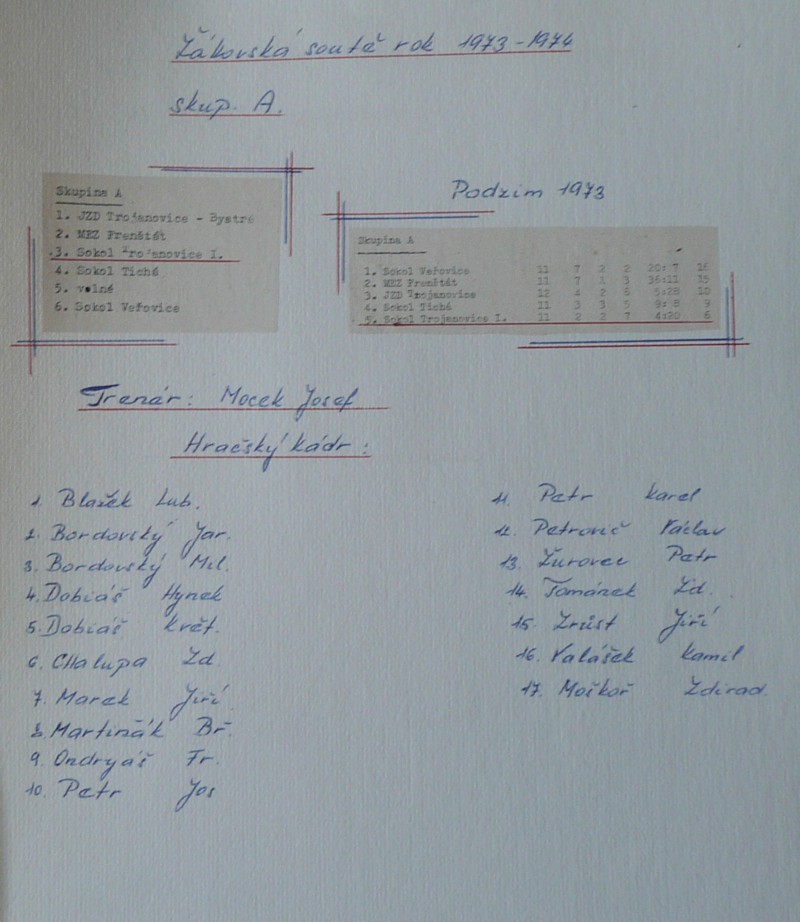 Žákovská soutě rok 1973-1974
skup. A.
Skupina A
1. JZD Trojanovice - Bystré
2. MEZ Frenštát
3. Sokol Trojanovice I.
4. Sokol Tichá
5. volné
6. Sokol Veřovice
Podzim 1973
Skupina A
1. Sokol Veřovice 11 7 2 2 20: 7 16
2. MEZ Frenštát 11 7 1 3 36:11 15
3. JZD Trojanovice 12 4 2 6 5:28 10
4. Sokol Tichá 11 3 3 5 9: 8 9
5. Sokol Trojanovice I. 11 2 2 7 4:20 6
Trenár: Mocek Josef
Hračský kádr:
1. Blažek Lub.
2. Bordovský Jar.
3. Bordovský Mil.
4. Dobiáš Hynek
5. Dobiáš Květ.
6. Chalupa Zd.
7. Marek Jiří
8. Martiňák Bř.
9. Ondryáš Fr.
10. Petr Jos
11. Petr Karel
12. Petrovič Václav
13. Žurovec Petr
14. Tománek Zd.
15. Zrůst Jiří
16. Valášek Kamil
17. Moškoř Zdirad.